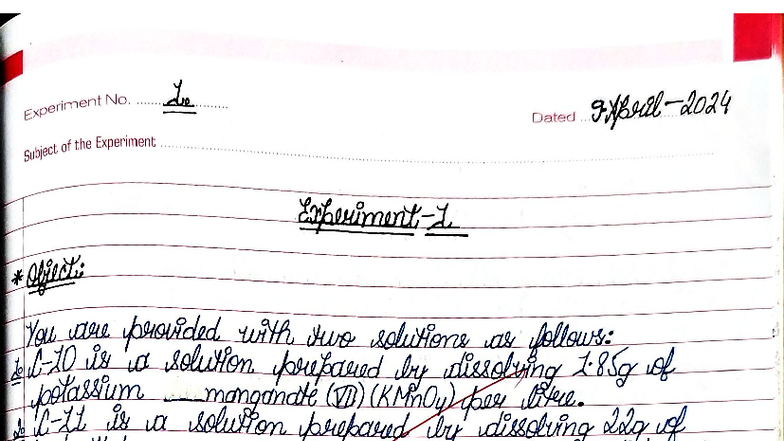 Experiment No. ........ 1. ........
Dated ... 9 April - 2024
Subject of the Experiment
Experiment-1
* Object:
You are provided with two solutions as follows:
1. C-10 is a solution prepared by dissolving 1.85g of
potassium ___ manganate (VII) (KMnO4) per litre.
2. C-11 is a solution prepared by dissolving 22g of